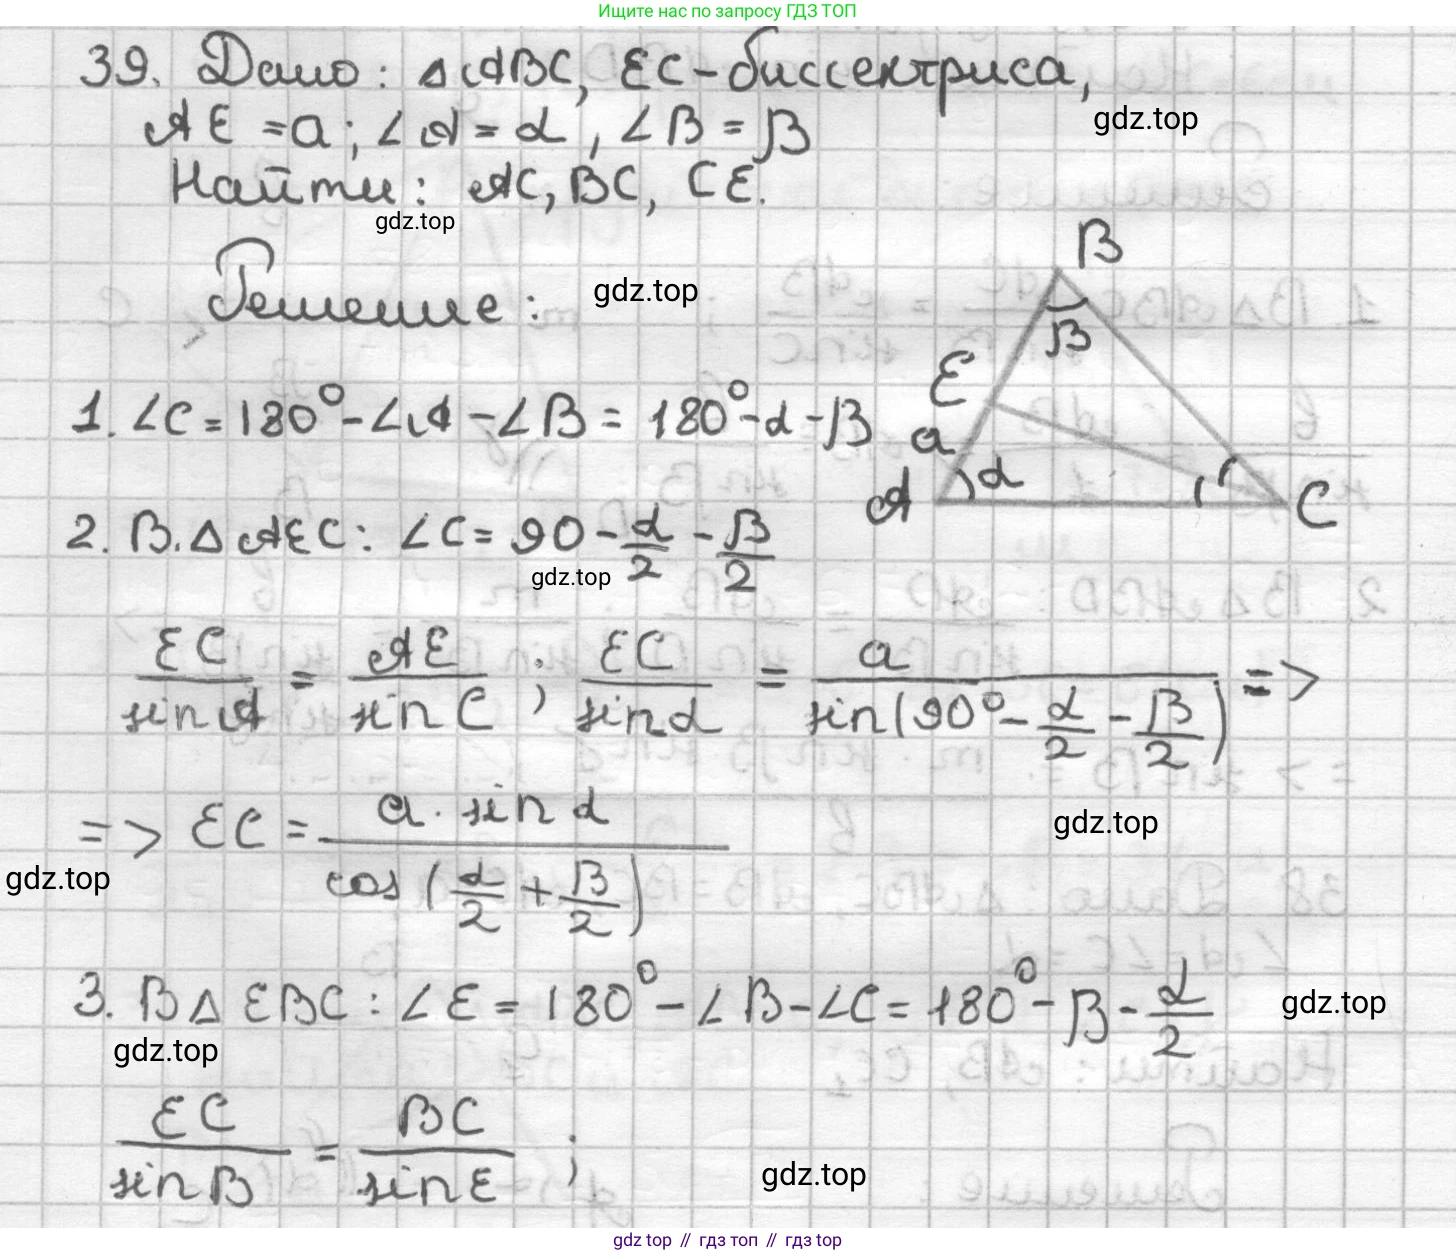 Ищите нас по запросу ГДЗ ТОП
39. Дано: △ABC, EC - биссектриса,
AE = a; ∠A = α, ∠B = β
gdz.top
Найти: AC, BC, CE.
gdz.top
Решение:
gdz.top
B
β
E
a
A
α
C
1. ∠C = 180° - ∠A - ∠B = 180° - α - β
2. В △ AEC: ∠C = 90 - α/2 - β/2
gdz.top
EC/sin A = AE/sin C ; EC/sin α = a/sin(90° - α/2 - β/2) =>
=> EC = a · sin α / cos (α/2 + β/2)
gdz.top
gdz.top
3. В △ EBC: ∠E = 180° - ∠B - ∠C = 180° - β - α/2
gdz.top
gdz.top
EC/sin B = BC/sin E ;
gdz.top
gdz top // гдз топ // gdz top